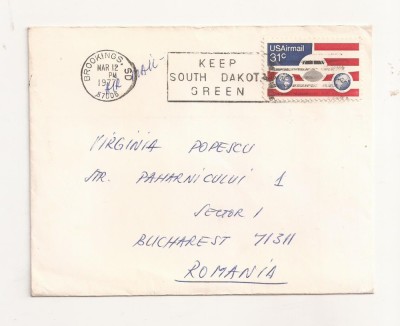 BROOKINGS, SD
MAR 12
PM
1977
57006
AIR MAIL
KEEP
SOUTH DAKOTA
GREEN
USAirmail
31c
VIRGINIA POPESCU
STR. PAHARNICULUI 1
SECTOR 1
BUCHAREST 71311
ROMANIA